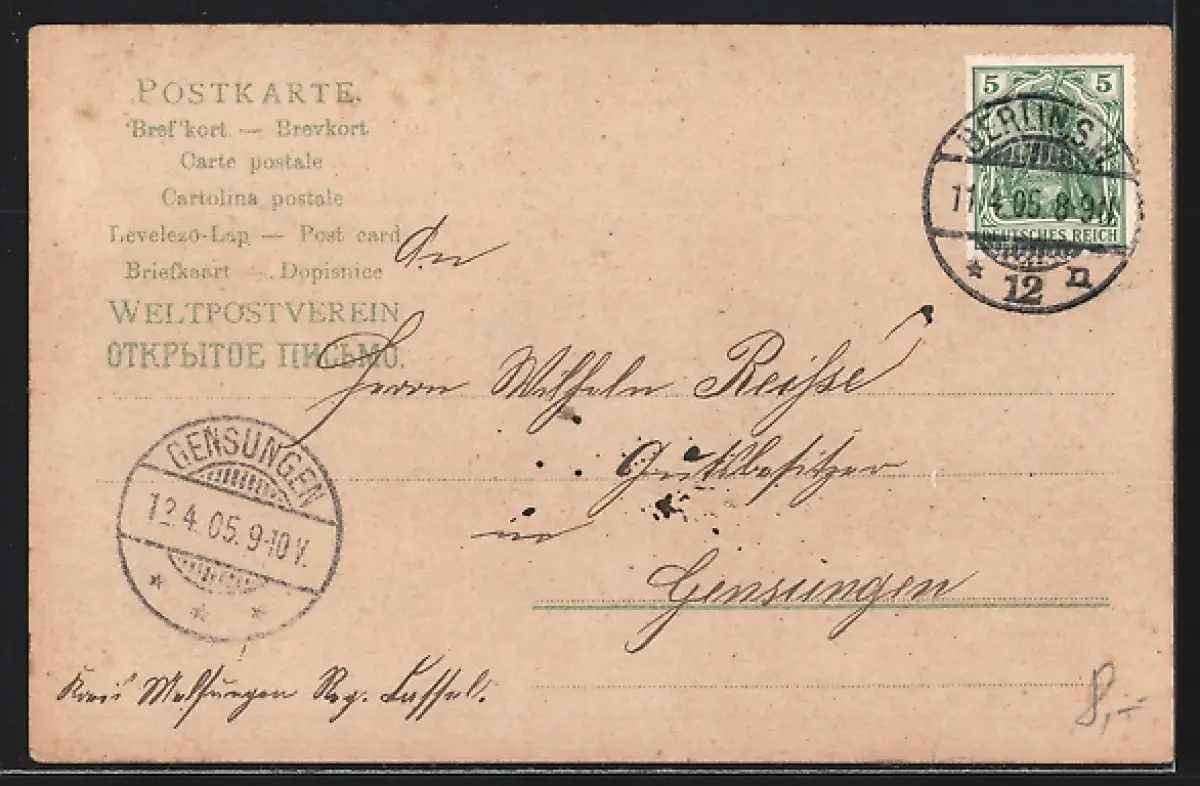 POSTKARTE.
Brefkort — Brevkort
Carte postale
Cartolina postale
Levelezö-Lap — Post card
Briefkaart — Dopisnice
WELTPOSTVEREIN
ОТКРЫТОЕ ПИСЬМО.
5 5
DEUTSCHES REICH
BERLIN S.W.
11.4.05. 8-9N.
* 12 n
An
Herrn Wilhelm Reisse
Gutsbesitzer
in
Gensungen
GENSUNGEN
12.4.05. 9-10V.
* * *
Kreis Melsungen Reg. Cassel.
8,-